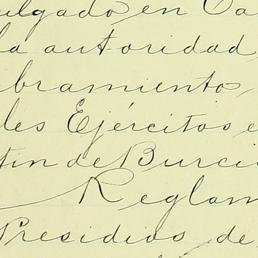 ulgado en Ca
la autoridad,
bramiento,
les Ejércitos e
tin de Burci
Reglam
Presidios de